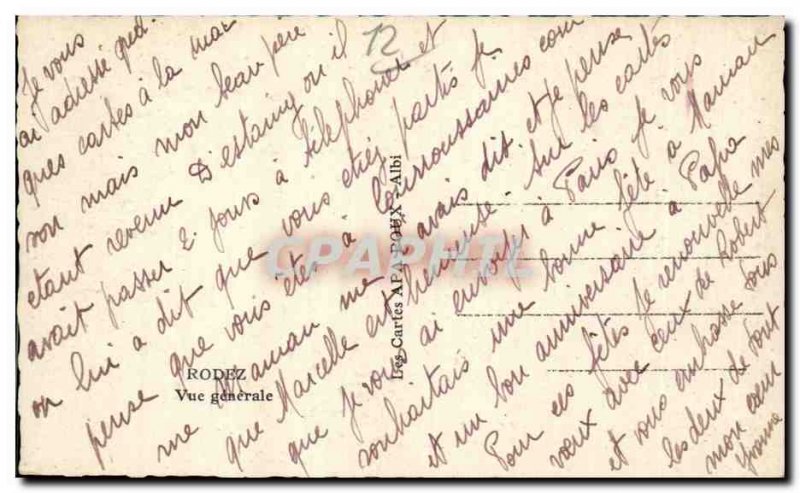 Je vous
ai adressé quel-
ques cartes à la mai
son mais mon beau père
étant revenu D'estaing ou il
avait passer 2 jours à téléphoner et
on lui a dit que vous étiez partis je
pense que vous êtes à comme
me Maman me l'avais dit et je pense
que Marcelle est heureuse. Sur les cartes
que je vous ai envoyé à Paris je vous
souhaitais une bonne fête a Maman
et un bon anniversaire a Papa
Pour ces fêtes je renouvelle mes
vœux avec ceux de Robert
et vous embrasse tous
les deux de tout
mon cœur
Yvonne
12
RODEZ
Vue générale
Les Cartes APA-POUX - Albi
CPAPHIL